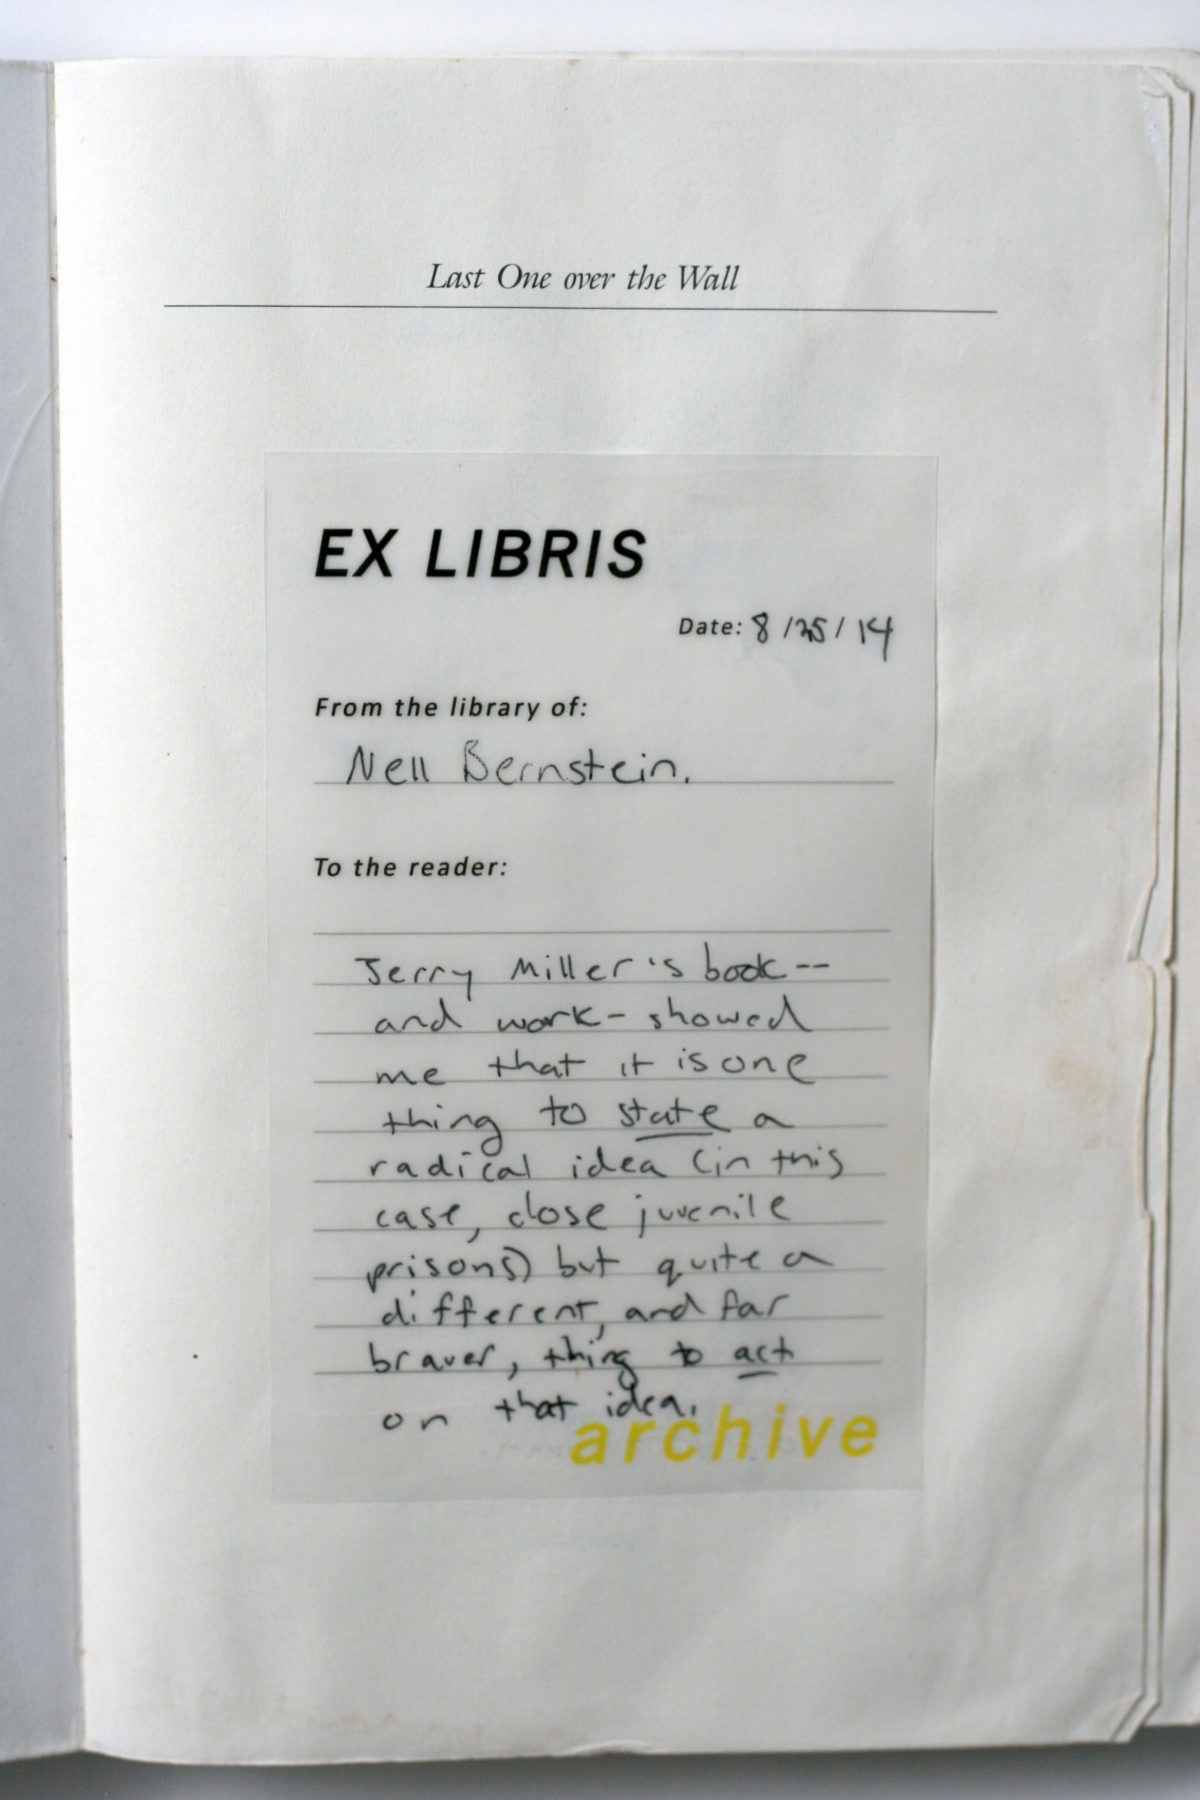 Last One over the Wall
EX LIBRIS
Date: 8/25/14
From the library of:
Nell Bernstein.
To the reader:
Jerry Miller's book--
and work- showed
me that it is one
thing to state a
radical idea (in this
case, close juvenile
prisons) but quite a
different, and far
braver, thing to act
on that idea.
archive